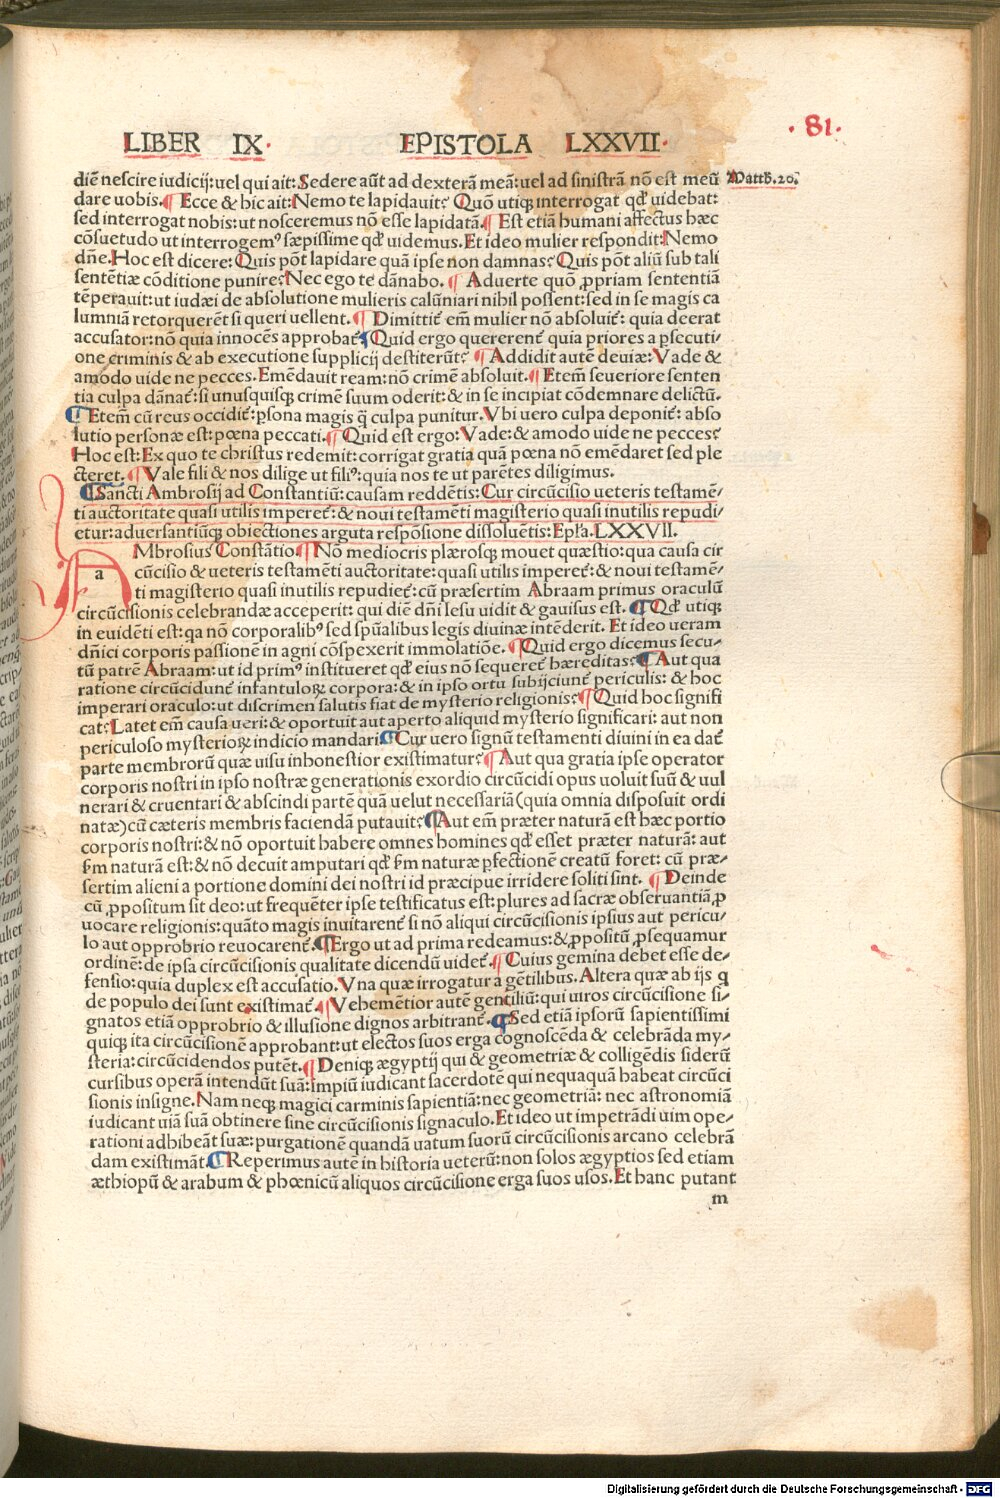 LIBER IX. EPISTOLA LXXVII.
.81.
diē nescire iudicij: uel qui ait: Sedere aūt ad dexterā meā: uel ad sinistrā nō est meū
Matth. 20.
dare uobis. ¶ Ecce & hic ait: Nemo te lapidauit? Quō utiqꝫ interrogat qđ uidebat:
sed interrogat nobis: ut nosceremus nō esse lapidatā. ¶ Est etiā humani affectus hæc
cōsuetudo ut interrogemꝰ sæpissime qđ uidemus. Et ideo mulier respondit: Nemo
dn̄e. Hoc est dicere: Quis pōt lapidare quā ipse non damnas? Quis pōt aliū sub tali
sentētiæ cōditione punire? Nec ego te dānabo. ¶ Aduerte quō ꝓpriam sententiā
tēperauit: ut iudæi de absolutione mulieris calūniari nihil possent: sed in se magis ca
lumniā retorquerēt si queri uellent. ¶ Dimittit̄ em̄ mulier nō absoluit̄: quia deerat
accusator: nō quia innocēs approbat̄ ¶ Quid ergo quererent quia priores a ꝑsecuti-
one criminis & ab executione supplicij destiterūt? ¶ Addidit autē deuiæ: Vade &
amodo uide ne pecces. Emēdauit ream: nō crimē absoluit. ¶ Etem̄ seueriore senten
tia culpa dānat̄: si unusquisqꝫ crimē suum oderit: & in se incipiat cōdemnare delictū.
¶ Etem̄ cū reus occidit̄: ꝑsona magis q̄ culpa punitur. Vbi uero culpa deponit̄: abso
lutio personæ est: pœna peccati. ¶ Quid est ergo: Vade: & amodo uide ne pecces?
Hoc est: Ex quo te christus redemit: corrigat gratia quā pœna nō emēdaret sed ple
cteret. ¶ Vale fili & nos dilige ut filiꝰ: quia nos te ut parētes diligimus.
¶ Sancti Ambrosij ad Constantiū: causam reddētis: Cur circūcisio ueteris testamē-
ti auctoritate quasi utilis imperet̄: & noui testamēti magisterio quasi inutilis repudi-
etur: aduersantiūqꝫ obiectiones arguta respōsione dissoluētis: Epl'a. LXXVII.
A
a
Mbrosius Constātio ¶ Nō mediocris plærosqꝫ mouet quæstio: qua causa cir
cūcisio & ueteris testamēti auctoritate: quasi utilis imperet̄: & noui testamē-
ti magisterio quasi inutilis repudiet̄: cū præsertim Abraam primus oraculū
circūcisionis celebrandæ acceperit: qui diē dn̄i Iesu uidit & gauisus est. ¶ Qđ utiqꝫ
in euidēti est: qa nō corporalibꝰ sed spūalibus legis diuinæ intēderit. Et ideo ueram
dn̄ici corporis passionē in agni cōspexerit immolatiōe. ¶ Quid ergo dicemus secu-
tū patrē Abraam: ut id primꝰ institueret qđ eius nō sequeret̄ hæreditas? ¶ Aut qua
ratione circūcidunt̄ infantuloꝝ corpora: & in ipso ortu subijciunt̄ periculis: & hoc
imperari oraculo: ut discrimen salutis fiat de mysterio religionis? ¶ Quid hoc signifi
cat? Latet em̄ causa ueri: & oportuit aut aperto aliquid mysterio significari: aut non
periculoso mysterioꝝ indicio mandari. ¶ Cur uero signū testamenti diuini in ea dat̄
parte membrorū quæ uisu inhonestior existimatur? ¶ Aut qua gratia ipse operator
corporis nostri in ipso nostræ generationis exordio circūcidi opus uoluit suū & uul
nerari & cruentari & abscindi partē quā uelut necessariā (quia omnia disposuit ordi
natæ) cū cæteris membris faciendā putauit? ¶ Aut em̄ præter naturā est hæc portio
corporis nostri: & nō oportuit habere omnes homines qđ esset præter naturā: aut
s̄m naturā est: & nō decuit amputari qđ s̄m naturæ ꝑfectionē creatū foret: cū præ-
sertim alieni a portione domini dei nostri id præcipue irridere soliti sint. ¶ Deinde
cū ꝓpositum sit deo: ut frequēter ipse testificatus est: plures ad sacræ obseruantiā ꝓ
uocare religionis: quāto magis inuitarent̄ si nō aliqui circūcisionis ipsius aut pericu-
lo aut opprobrio reuocarent̄. ¶ Ergo ut ad prima redeamus: & ꝓpositū ꝓsequamur
ordinē: de ipsa circūcisionis qualitate dicendū uidet̄. ¶ Cuius gemina debet esse de-
fensio: quia duplex est accusatio. Vna quæ irrogatur a gētilibus. Altera quæ ab ijs q
de populo dei sunt existimat̄. ¶ Vehemētior autē gentiliū: qui uiros circūcisione si-
gnatos etiā opprobrio & illusione dignos arbitrant̄. ¶ Sed etiā ipsorū sapientissimi
quiqꝫ ita circūcisionē approbant: ut electos suos erga cognoscēda & celebrāda my-
steria: circūcidendos putēt. ¶ Deniqꝫ ægyptij qui & geometriæ & colligēdis siderū
cursibus operā intendūt suā: impiū iudicant sacerdotē qui nequaquā habeat circūci
sionis insigne. Nam neqꝫ magici carminis sapientiā: nec geometriā: nec astronomiā
iudicant uiā suā obtinere sine circūcisionis signaculo. Et ideo ut impetrādi uim ope-
rationi adhibeāt suæ: purgationē quandā uatum suorū circūcisionis arcano celebrā
dam existimāt. ¶ Reperimus autē in historia ueterū: non solos ægyptios sed etiam
æthiopū & arabum & phœnicū aliquos circūcisione erga suos usos. Et hanc putant
m
Digitalisierung gefördert durch die Deutsche Forschungsgemeinschaft - DFG